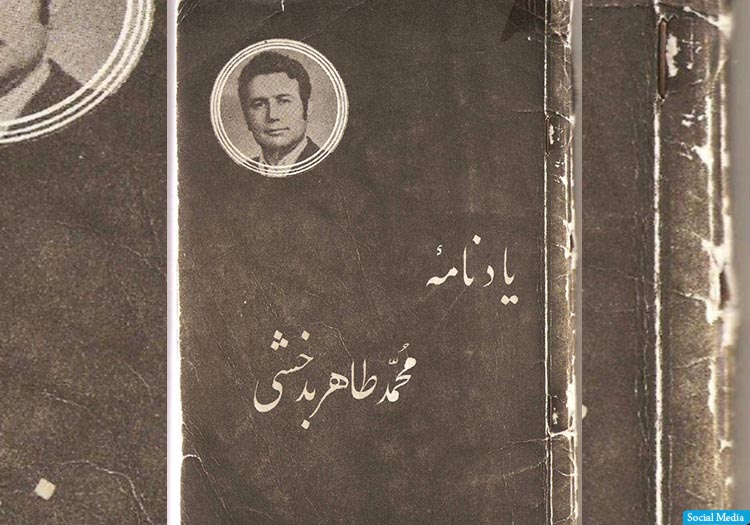 یادنامۀ
محمّد طاهر بدخشی
Social Media